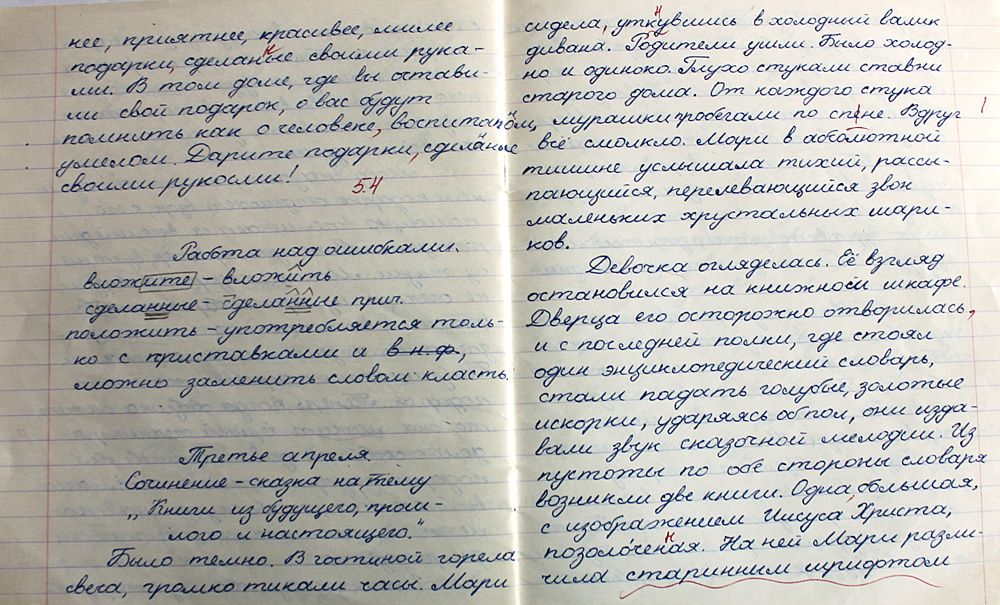 нее, приятнее, красивее, милее
подарки, сделанные своими рука-
ми. В том доме, где вы остави-
ли свой подарок, о вас будут
помнить как о человеке, воспитанном,
умелом. Дарите подарки, сделанные
своими руками!
5.4
Работа над ошибками.
вложите – вложить
сделанные – сделанные прич.
положить – употребляется толь-
ко с приставками и в н.ф.,
можно заменить словом класть.
Третье апреля
Сочинение – сказка на тему
„Книги из будущего, прош-
лого и настоящего."
Было темно. В гостиной горела
свеча, громко тикали часы. Мари
сидела, уткнувшись в холодный валик
дивана. Родители ушли. Было холод-
но и одиноко. Глухо стукали ставни
старого дома. От каждого стука
мурашки пробегали по спине. Вдруг
всё смолкло. Мари в абсолютной
тишине услышала тихий, рассы-
пающийся, перелевающийся звон
маленьких хрустальных шари-
ков.
Девочка огляделась. Её взгляд
остановился на книжной шкафе.
Дверца его осторожно отворилась,
и с последней полки, где стоял
один энциклопедический словарь,
стали падать голубые, золотые
искорки, ударяясь об пол, они изда-
вали звук сказочной мелодии. Из
пустоты по обе стороны словаря
возникли две книги. Одна, большая,
с изображением Иисуса Христа,
позолоченная. На ней Мари разли-
чила старинным шрифтом